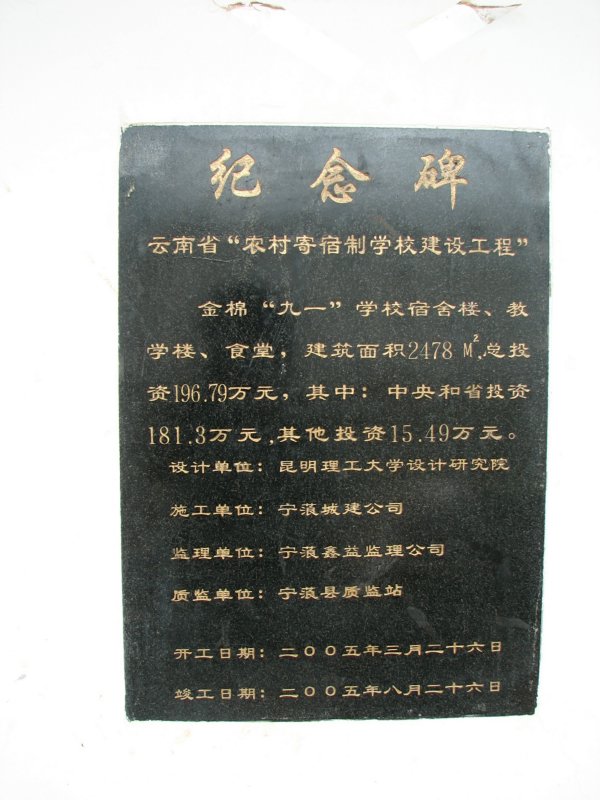 纪念碑
云南省“农村寄宿制学校建设工程”
金棉“九一”学校宿舍楼、教
学楼、食堂，建筑面积2478 M²，总投
资196.79万元，其中：中央和省投资
181.3万元，其他投资15.49万元。
设计单位：昆明理工大学设计研究院
施工单位：宁蒗城建公司
监理单位：宁蒗鑫益监理公司
质监单位：宁蒗县质监站
开工日期：二00五年三月二十六日
竣工日期：二00五年八月二十六日